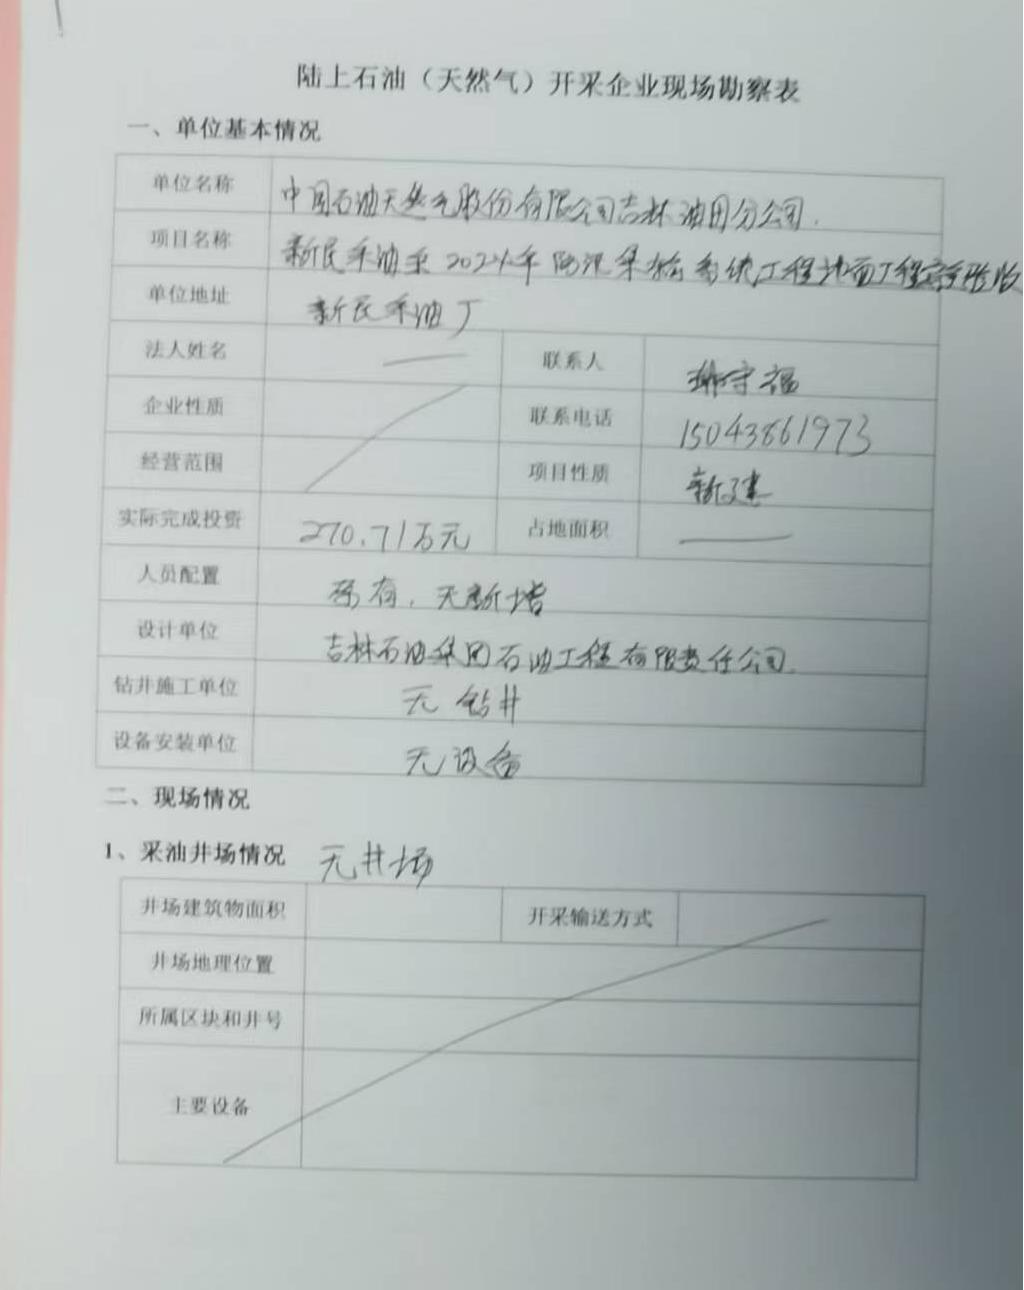 陆上石油（天然气）开采企业现场勘察表
一、单位基本情况
单位名称 中国石油天然气股份有限公司吉林油田分公司.
项目名称 新民采油 2024年 集输系统工程地面工程
单位地址 新民采油厂
法人姓名 — 联系人 守福
企业性质 联系电话 15043861973
经营范围 项目性质 新建
实际完成投资 270.71万元 占地面积 —
人员配置 有，无新增
设计单位 吉林石油集团石油工程有限责任公司.
钻井施工单位 无钻井
设备安装单位 无设备
二、现场情况
1、采油井场情况 无井场
井场建筑物面积 开采输送方式
井场地理位置
所属区块和井号
主要设备